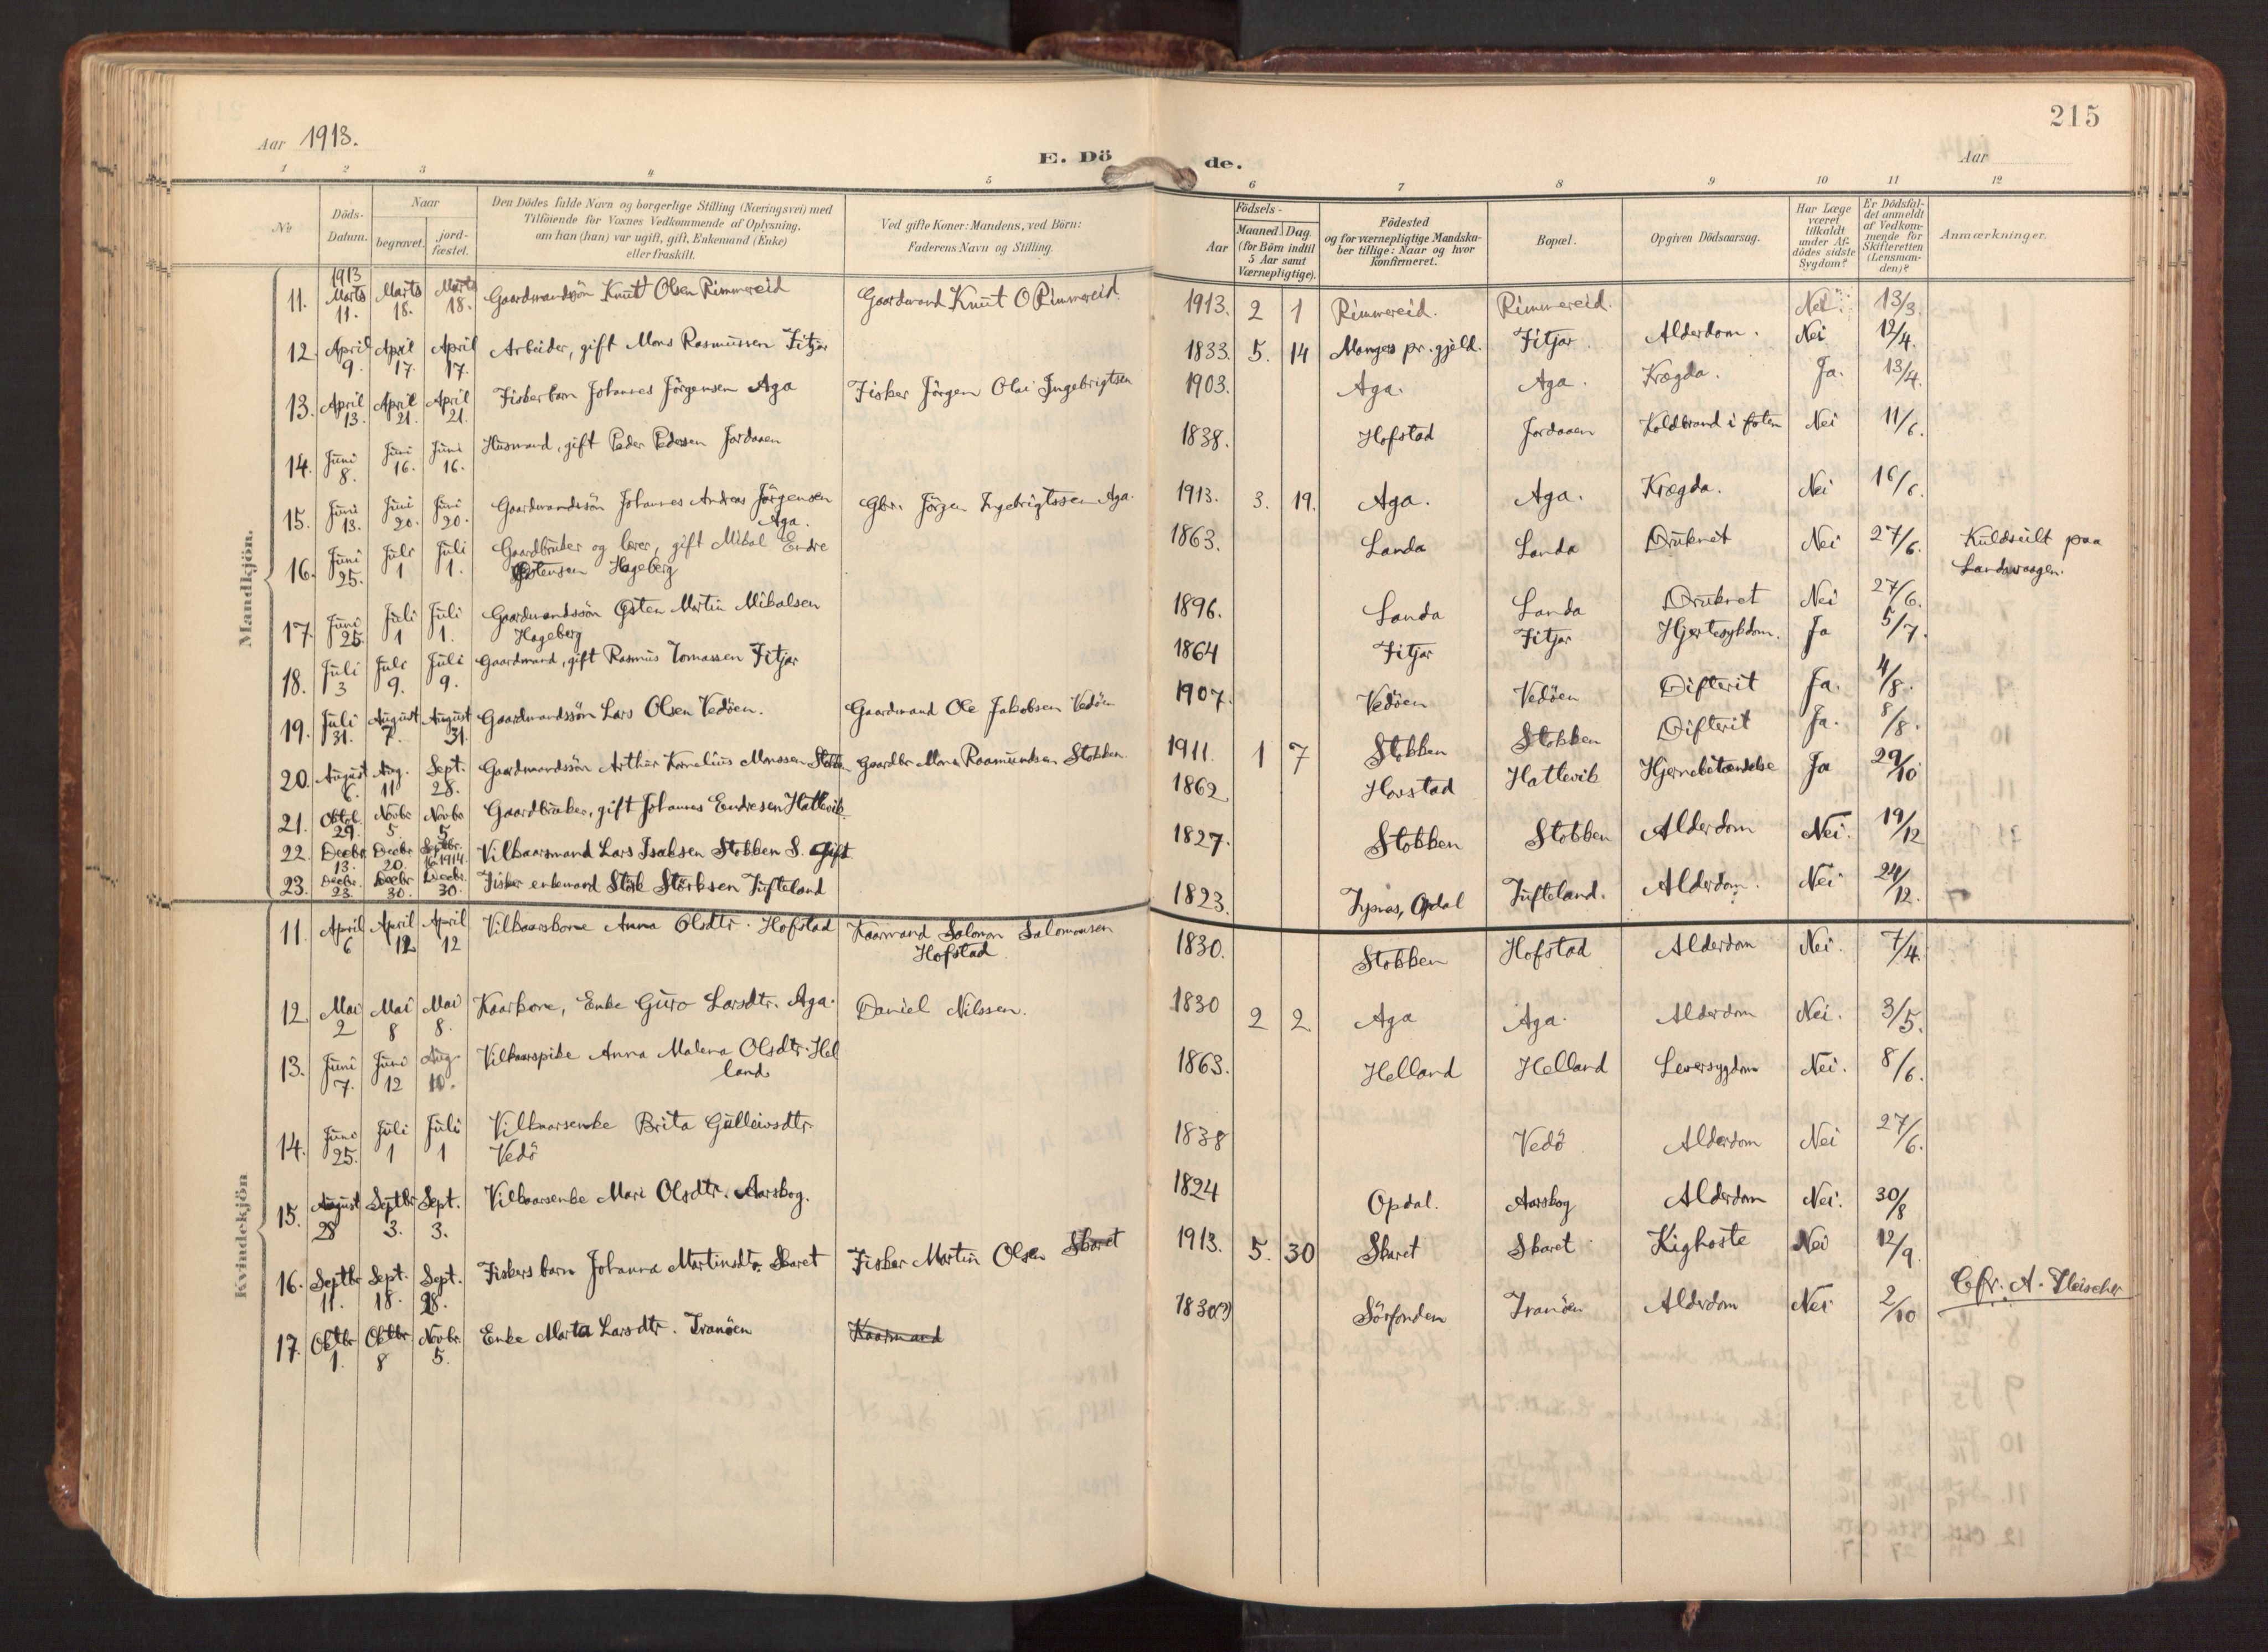 215
Aar 1913.
E. Dö de.
Aar
1 2 3 4 5 6 7 8 9 10 11 12
No
Döds-
Datum.
Naar
begravet.
jord-
fæstet.
Den Dödes fulde Navn og borgerlige Stilling (Næringsvei) med
Tilföiende for Voxnes Vedkommende af Oplysning,
om han (hun) var ugift, gift, Enkemand (Enke)
eller fraskilt.
Ved gifte Koner: Mandens, ved Börn:
Faderens Navn og Stilling.
Födsels-
Aar
Maaned Dag.
(for Börn indtil
5 Aar samt
Værnepligtige).
Födested
og for værnepligtige Mandska-
ber tillige: Naar og hvor
konfirmeret.
Bopæl.
Opgiven Dödsaarsag.
Har Læge
været
tilkaldt
under Af-
dödes sidste
Sygdom?
Er Dödsfal-
det anmeldt
af Vedkom-
mende for
Skifteretten
(Lensman-
den)?
Anmærkninger.
Mandkjön.
11. 1913 Marts 11. Marts 18. Marts 18. Gaardmandssön Knut Olsen Rimmereid Gaardmand Knut O Rimmereid. 1913. 2 1 Rimmereid. Rimmereid. Nei. 13/3.
12. April 9. April 17. April 17. Arbeider, gift Mons Rasmussen Fitjar 1833. 5. 14 Manger pr. gjeld. Fitjar. Alderdom. Nei 12/4.
13. April 13. April 21. April 21. Fiskerbarn Johannes Jörgensen Aga Fisker Jörgen Olai Ingebrigtsen 1903. Aga. Aga. Krægda. Ja. 13/4.
14. Juni 8. Juni 16. Juni 16. Husmand, gift Peder Pedersen Jordaaen 1838. Hofstad Jordaaen Koldbrand i foten Nei 11/6.
15. Juni 13. Juni 20. Juni 20. Gaardmandssön Johannes Andreas Jörgensen
Aga. Gbr. Jörgen Ingebrigtssen Aga. 1913. 3. 19. Aga. Aga. Krægda. Nei 16/6.
16. Juni 25. Juli 1 Juli 1. Gaardbruker og lærer, gift Mikal Endre
Östensen Hageberg 1863. Landa Landa Druknet Nei 27/6. Kuldseilt paa
Landavaagen.
17. Juni 25 Juli 1 Juli 1. Gaardmandssön Østen Martin Mikalsen
Hageberg 1896. Landa Landa Druknet Nei 27/6.
18. Juli 3 Juli 9. Juli 9. Gaardmand, gift Rasmus Tomassen Fitjar 1864 Fitjar Fitjar Hjertesykdom. Ja 5/7.
19. Juli 31. August 7. August 31. Gaardmandssön Lars Olsen Vedöen. Gaardmand Ole Jakobsen Vedöen 1907. Vedöen Vedöen Difterit Ja. 4/8.
20. August 6. Aug. 11 Sept. 28. Gaardmandssön Arthur Kornelius Monssen Stokken Gaardbr Mons Rasmundsen Stokken. 1911. 1 7 Stokken Stokken Difterit Ja. 8/8.
21. Oktob. 29. Novbr 5. Novbr 5. Gaardbruker, gift Johannes Endresen Hatlevik 1862. Hovstad Hatlevik Hjernebetændelse Ja 29/10
22. Decbr 13. Decbr 20. Septbr. 1914. Vilkaarsmand Lars Isaksen Stokken S. Gift 1827. Stokken Stokken Alderdom Nei. 19/12
23. Decbr. 23. Decbr 30. Decbr. 30. Fisker enkemand Störk Störksen Tufteland 1823. Opdal Tufteland. Alderdom. Nei 24/12.
Kvindekjön
11. April 6 April 12 April 12 Vilkaarskone Anna Olsdtr. Hofstad Kaarmand Salomon Salomonsen
Hofstad 1830. Stokken Hofstad Alderdom Nei. 7/4.
12. Mai 2 Mai 8 Mai 8. Kaarkone, Enke Guro Larsdtr. Aga. Daniel Nilssen. 1830 2 2. Aga Aga. Alderdom Nei. 3/5.
13. Juni 7. Juni 12 Aug. 10. Vilkaarspike Anna Malena Olsdtr. Hel
land 1863. Helland Helland Leversygdom Nei. 8/6.
14. Juni 25. Juli 1 Juli 1 Vilkaarsenke Brita Gulleivsdtr.
Vedö 1838 Vedö Alderdom Nei 27/6.
15. August 28 Septbr 3. Sept. 3. Vilkaarsenke Mari Olsdtr. Aarskog. 1824 Opdal. Aarskog Alderdom Nei. 30/8
16. Septbr 11. Sept. 18. Sept. 28. Fiskers barn Johanna Martinsdtr. Skaret Fisker Martin Olsen Skaret 1913. 5. 30 Skaret Skaret Kighoste Nei 12/9.
17. Oktbr. 1. Oktbr 8 Novbr. 5. Enke Marta Larsdtr. Tranöen Kaarmand 1830(?) Sörfonden Tranöen Alderdom Nei 2/10 Cfr. A. Fleischer